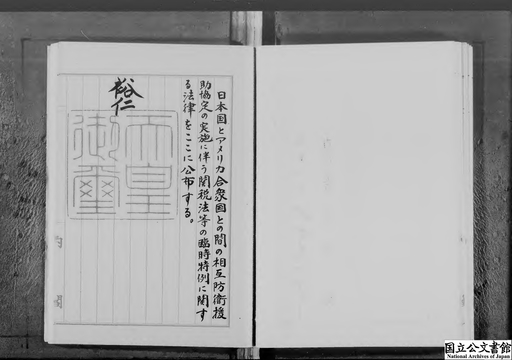 日本国とアメリカ合衆国との間の相互防衛援
助協定の実施に伴う関税法等の臨時特例に関す
る法律をここに公布する。
裕仁
天皇
御璽
国立公文書館
National Archives of Japan